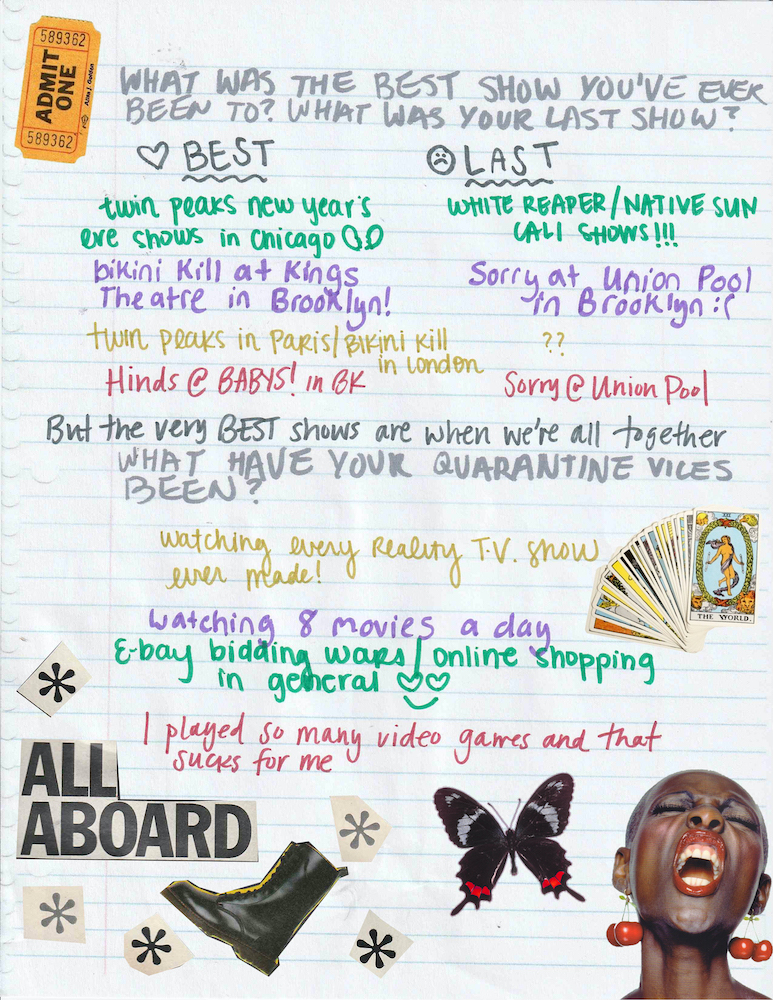 589362
ADMIT ONE
Alan J. Golden
589362
WHAT WAS THE BEST SHOW YOU'VE EVER
BEEN TO? WHAT WAS YOUR LAST SHOW?
♡ BEST
☹ LAST
twin peaks new year's
eve shows in chicago
WHITE REAPER/NATIVE SUN
CALI SHOWS!!!
bikini kill at Kings
Theatre in Brooklyn!
Sorry at Union Pool
in Brooklyn :(
twin peaks in Paris/Bikini Kill
in London
??
Hinds @ BABYS! in BK
Sorry @ Union Pool
But the very BEST shows are when we're all together
WHAT HAVE YOUR QUARANTINE VICES
BEEN?
watching every Reality T.V. show
ever made!
XXI
THE WORLD.
watching 8 movies a day
E-bay bidding wars/online shopping
in general ♡♡
I played so many video games and that
sucks for me
ALL
ABOARD